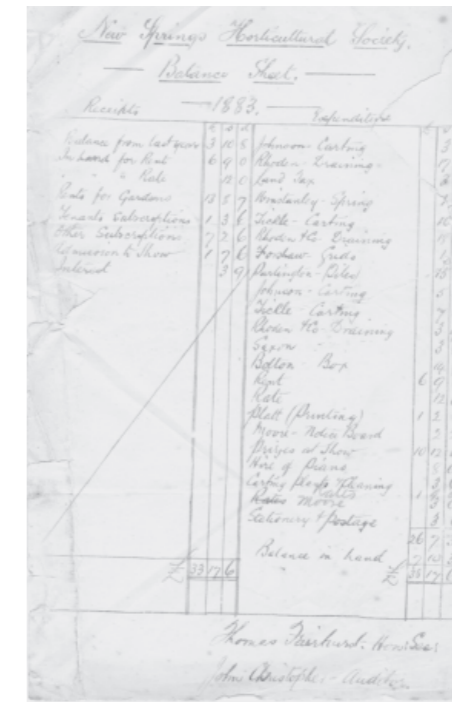 New Springs Horticultural Society.
Balance Sheet.
1883.
Receipts
£ s d
Balance from last year 3 10 8
In hands for Rent 6 9 0
" " " Rate 12 0
Rents for Gardens 13 5 7
Tenants Subscriptions 1 3 6
Other Subscriptions 7 2 6
Admission to Show 1 7 6
Interest 3 9
£ 33 17 6
Expenditure
£ s
Johnson - Carting 3
Rhoden - Draining 17
Land Tax
Constantly - Spring
Tickle - Carting 10
Rhoden & Co - Draining
Forshaw - Grids
Partington - Bricks 15
Johnson - Carting 5
Tickle - Carting 7
Rhoden & Co - Draining 3
Saxon " 3
Bolton - Box 14
Rent 6 9
Rate 12
Platt (Printing) 1 2
Moore - Notice Board
Prizes at Show 10 12
Hire of Piano
Carting Playfs & Planing
Rates Moore 1
Stationery & Postage 3
26 7
Balance in hand
£ 33 17 6
Thomas Fairhurst: Hon: Sec:
John Christopher - Auditor